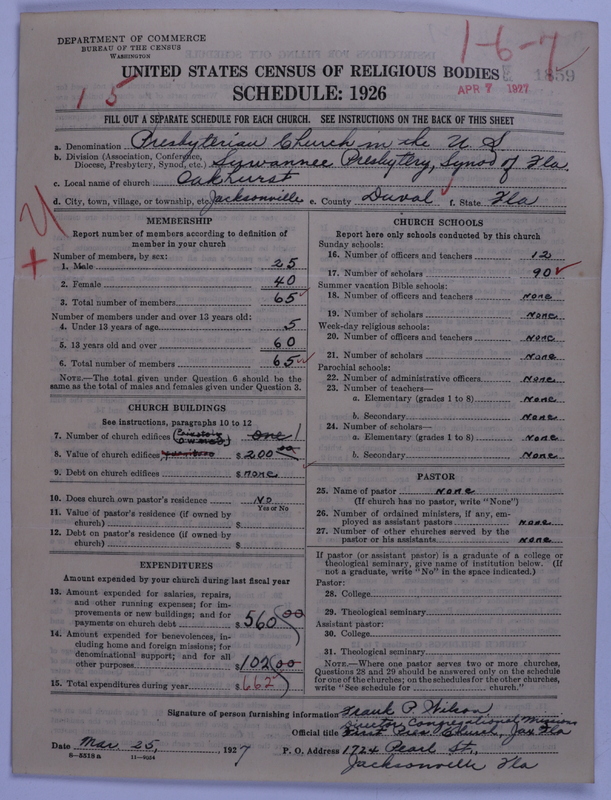 1-6-7
DEPARTMENT OF COMMERCE
BUREAU OF THE CENSUS
WASHINGTON
1859
APR 7 1927
UNITED STATES CENSUS OF RELIGIOUS BODIES
1 5
SCHEDULE: 1926
FILL OUT A SEPARATE SCHEDULE FOR EACH CHURCH. SEE INSTRUCTIONS ON THE BACK OF THIS SHEET
a. Denomination Presbyterian Church in the U. S.
b. Division (Association, Conference, Diocese, Presbytery, Synod, etc.) Sywannee Presbytery, Synod of Fla.
c. Local name of church Oakhurst
d. City, town, village, or township, etc. Jacksonville e. County Duval f. State Fla
MEMBERSHIP
Report number of members according to definition of
member in your church
Number of members, by sex:
1. Male 25
2. Female 40
3. Total number of members 65
Number of members under and over 13 years old:
4. Under 13 years of age 5
5. 13 years old and over 60
6. Total number of members 65
NOTE.—The total given under Question 6 should be the
same as the total of males and females given under Question 3.
CHURCH BUILDINGS
See instructions, paragraphs 10 to 12
7. Number of church edifices one 1
8. Value of church edifices $ 200 00
9. Debt on church edifices $ none
10. Does church own pastor's residence No
Yes or No
11. Value of pastor's residence (if owned by
church) $
12. Debt on pastor's residence (if owned by
church) $
EXPENDITURES
Amount expended by your church during last fiscal year
13. Amount expended for salaries, repairs,
and other running expenses; for im-
provements or new buildings; and for
payments on church debt $ 560 00
14. Amount expended for benevolences, in-
cluding home and foreign missions; for
denominational support; and for all
other purposes $ 102 00
15. Total expenditures during year $ 662
CHURCH SCHOOLS
Report here only schools conducted by this church
Sunday schools:
16. Number of officers and teachers 12
17. Number of scholars 90
Summer vacation Bible schools:
18. Number of officers and teachers none
19. Number of scholars None
Week-day religious schools:
20. Number of officers and teachers None
21. Number of scholars None
Parochial schools:
22. Number of administrative officers None
23. Number of teachers—
a. Elementary (grades 1 to 8) None
b. Secondary None
24. Number of scholars—
a. Elementary (grades 1 to 8) None
b. Secondary None
PASTOR
25. Name of pastor None
(If church has no pastor, write "None")
26. Number of ordained ministers, if any, em-
ployed as assistant pastors none
27. Number of other churches served by the
pastor or his assistants none
If pastor (or assistant pastor) is a graduate of a college or
theological seminary, give name of institution below. (If
not a graduate, write "No" in the space indicated.)
Pastor:
28. College
29. Theological seminary
Assistant pastor:
30. College
31. Theological seminary
NOTE.—Where one pastor serves two or more churches,
Questions 28 and 29 should be answered only on the schedule
for one of the churches; on the schedules for the other churches,
write "See schedule for church."
Signature of person furnishing information Frank P. Wilson
Director Congregational Missions
Official title First Pres. Church, Jax Fla
Date Mar 25, 1927 P. O. Address 1724 Pearl St.,
6-5518a 11-9164
Jacksonville Fla